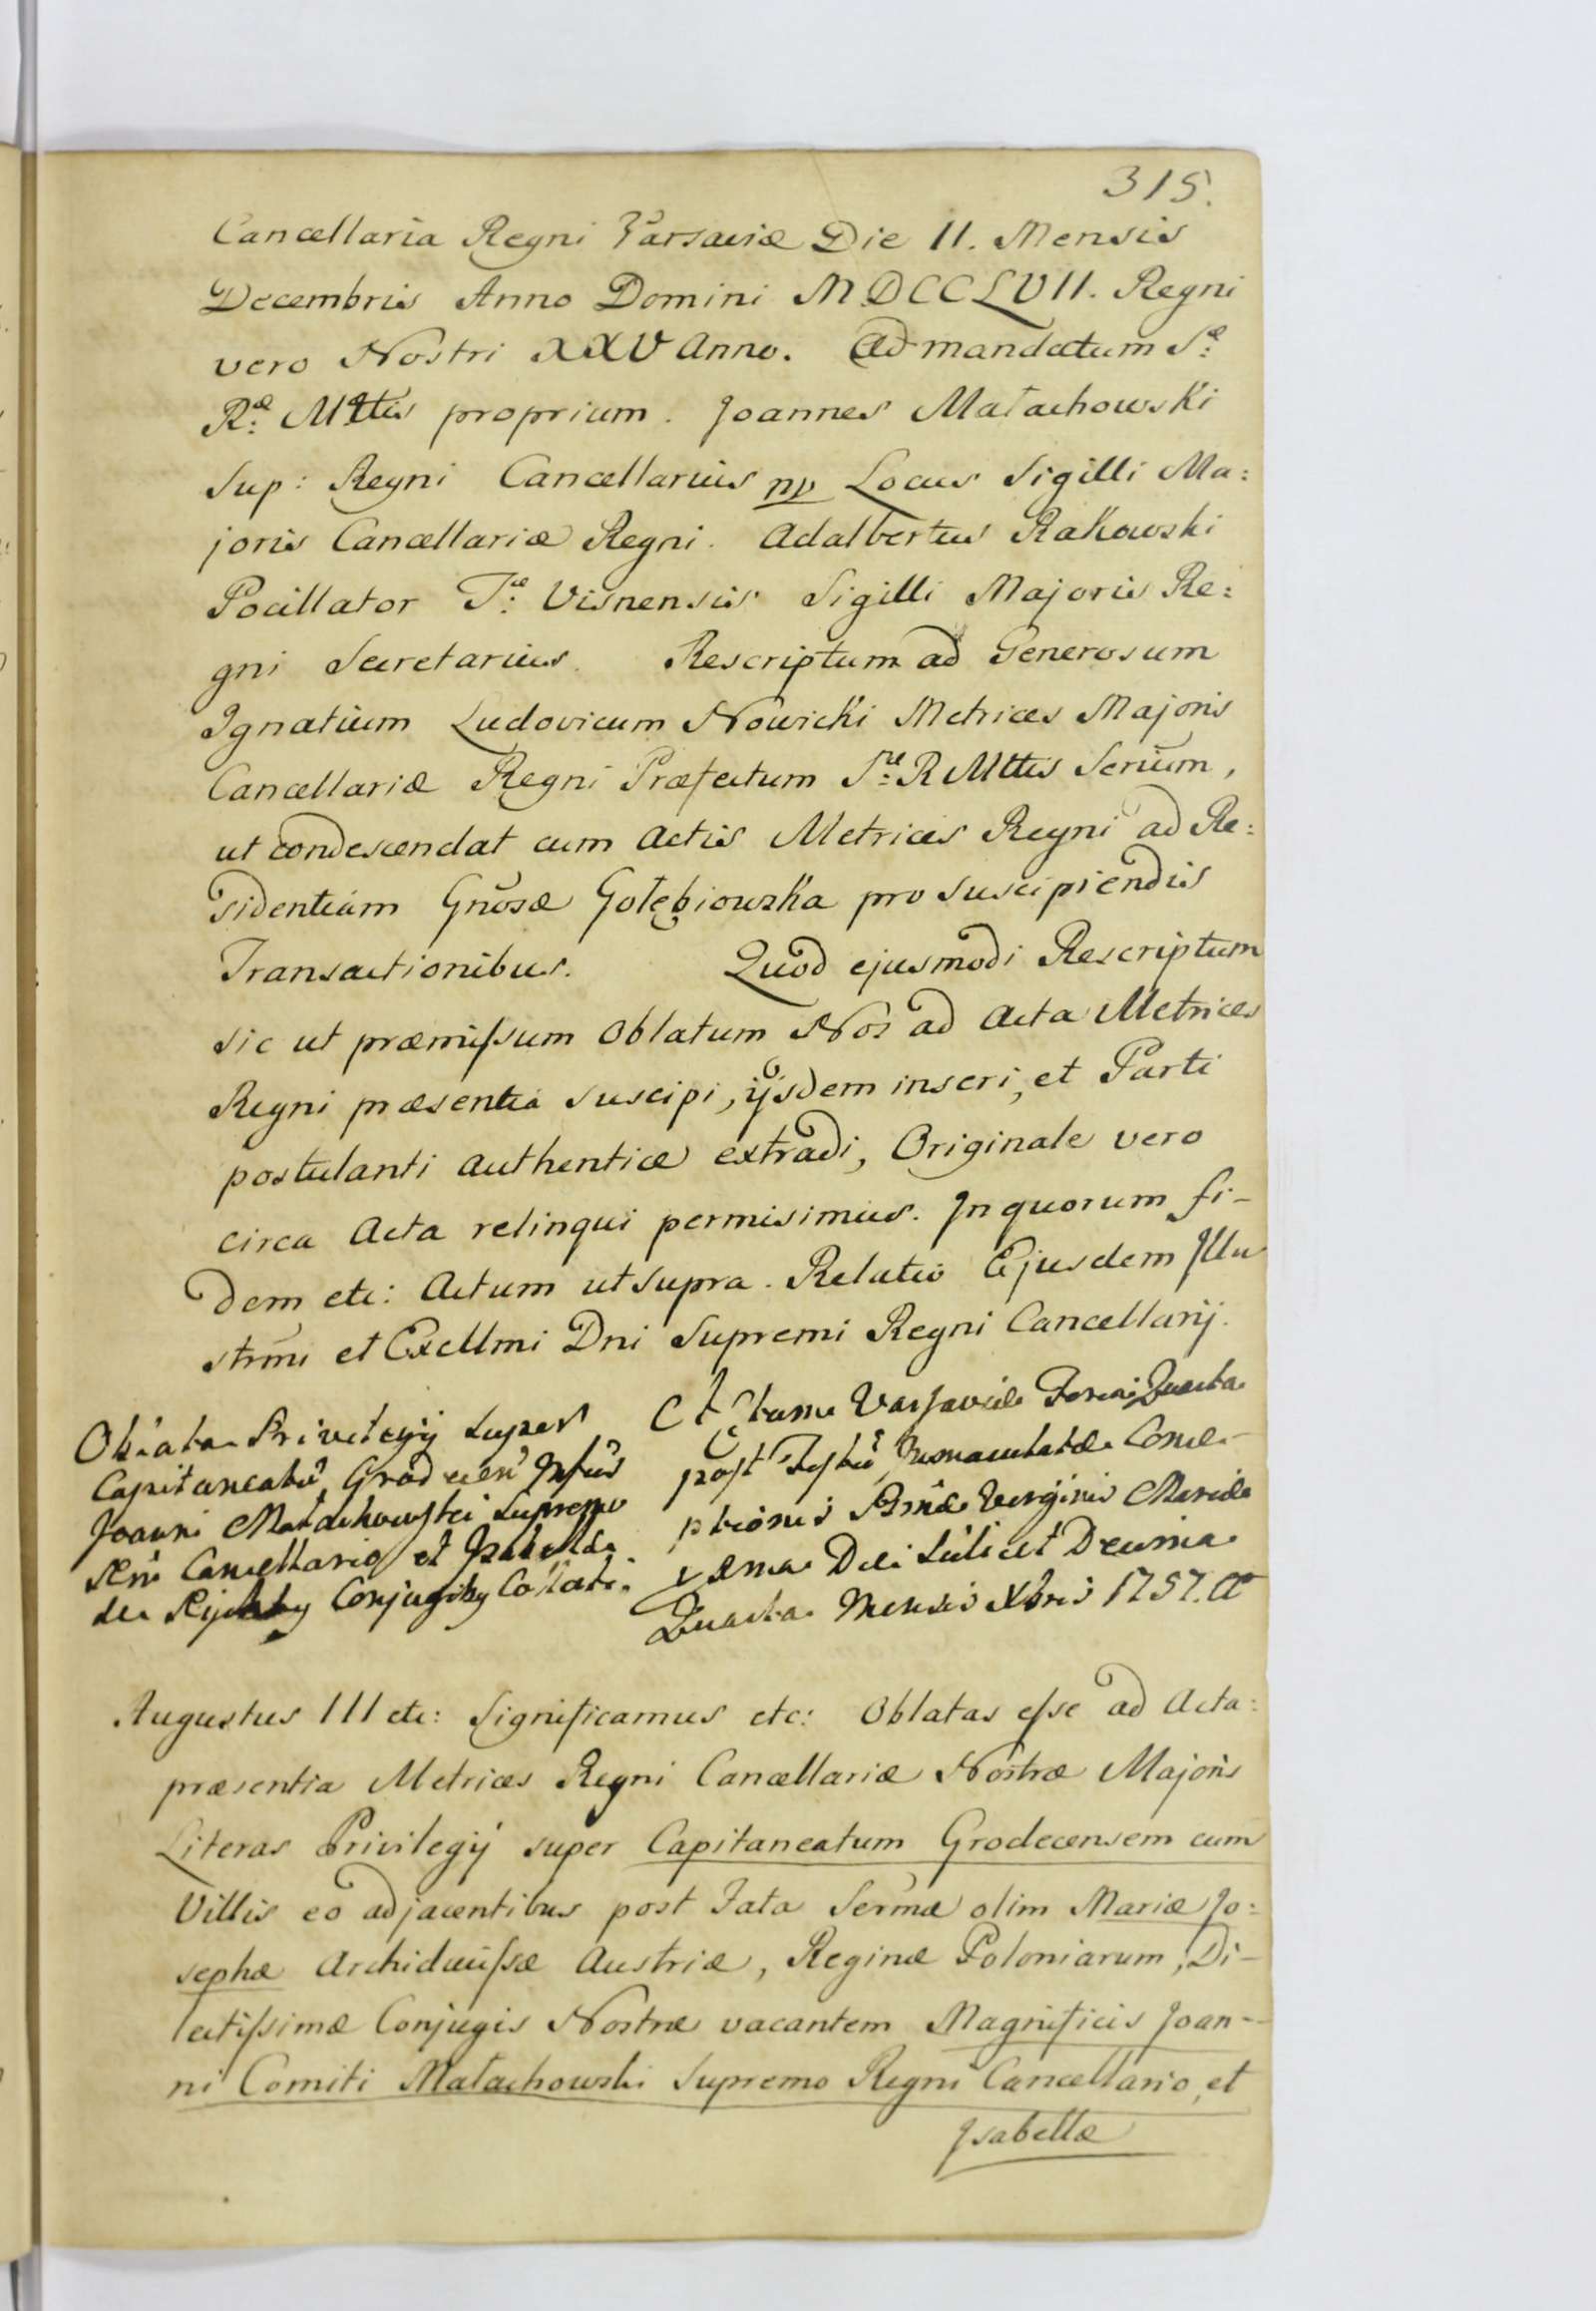 315.
Cancellaria Regni Varsaviæ Die 11. Mensis
Decembris Anno Domini MDCCLVII. Regni
vero Nostri XXV Anno. Ad mandatum Sæ:
Ræ: Mttis proprium. Joannes Małachowski
Sup: Regni Cancellarius mp Locus Sigilli Ma:
joris Cancellariæ Regni. Adalbertus Rakowski
Pocillator Tæ: Visnensis Sigilli Majoris Re:
gni Secretarius. Rescriptum ad Generosum
Ignatium Ludovicum Nowicki Metrices Majoris
Cancellariæ Regni Præfectum Sræ: R Mttis Serium,
ut condescendat cum Actis Metrices Regni ad Re:
sidentiam Gnosæ Gołębiowska pro suscipiendis
Transactionibus. Quod ejusmodi Rescriptum
sic ut præmissum Oblatum Nos ad Acta Metrices
Regni præsentia suscipi, ijsdem inseri, et Parti
postulanti authentice extradi, Originale vero
circa Acta relinqui permisimus. In quorum fi-
dem etc: Actum ut supra. Relatio Ejusdem Illu
strmi et Excellmi Dni Supremi Regni Cancellarij.
Oblata Privilegij super
Capitaneatū Grod
Joanni Małachowski Supremo
Cancellario et Isabellæ
de Conjugiby Collati.
Actum Varsaviæ Feria Quarta
post Festū Immaculatæ Conce-
ptionis Bmæ Virginis Mariæ
Die scilicet Decima
Quarta Mensis Xbris 1757. Ao
Augustus III etc: Significamus etc: Oblatas esse ad Acta:
præsentia Metrices Regni Cancellariæ Nostræ Majoris
Literas Privilegij super Capitaneatum Grodecensem cum
Villis eo adjacentibus post Fata Sermæ olim Mariæ Jo:
sephæ Archiducissæ Austriæ, Reginæ Poloniarum, Di-
lectissimæ Conjugis Nostræ vacantem Magnificis Joan-
ni Comiti Małachowski Supremo Regni Cancellario, et
Isabellæ